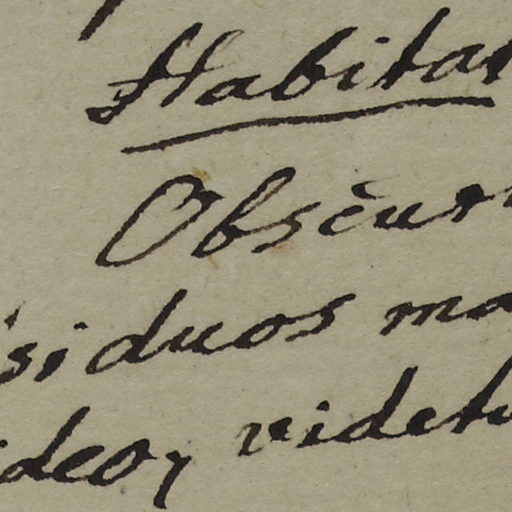 Habitat
Obscur
siduos ma
ideo, videtu